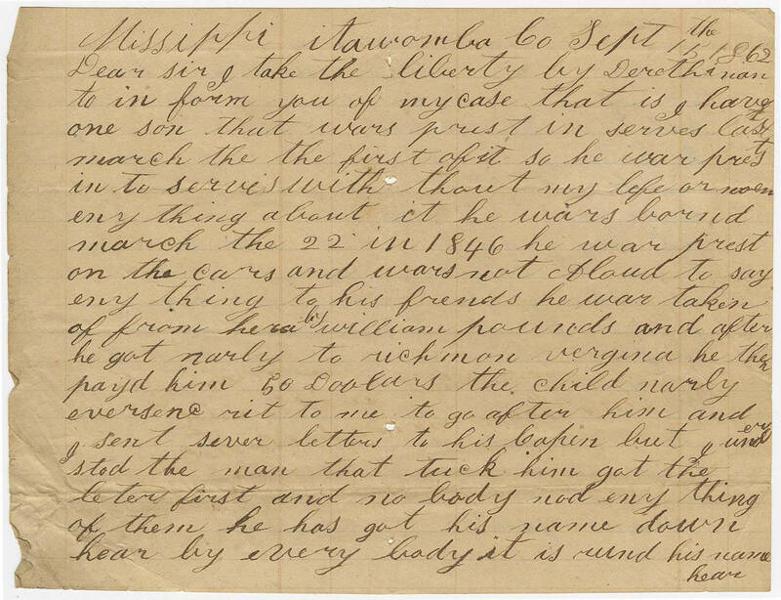 Missippi itawomba Co Sept the 15 1862
Dear sir I take the liberty by Dereth nan
to in form you of my case that is I have
one son that wars prest in serves last
march the the first of it so he war prest
in to servis with thout my life or noen
eny thing about it he wars bornd
march the 22 in 1846 he war prest
on the cars and wars not Aloud to say
eny thing to his frends he war taken
of from hera by william pounds and after
he got narly to richmon vergina he then
payd him 50 Doolars the child narly
eversenc rit to me to go after him and
I sent sever letters to his Capen but I under
stod the man that tuck him got the
leter first and no body nod eny thing
of them he has got his name down
hear by every body it is rund his name
hear